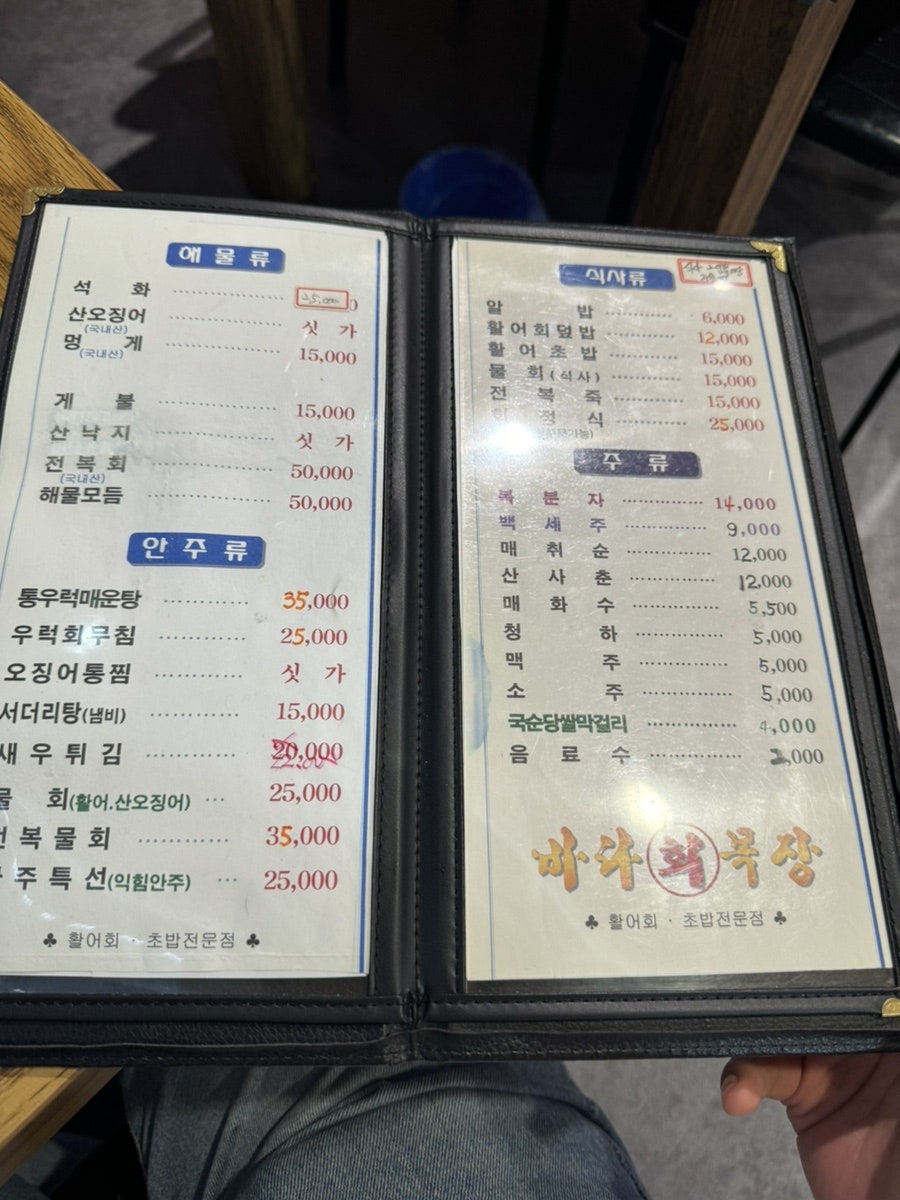 해물류
석 화 ············ 25,000
산오징어 ············ 싯 가
(국내산)
멍 게 ············ 15,000
(국내산)
게 불 ············ 15,000
산 낙 지 ············ 싯 가
전 복 회 ············ 50,000
(국내산)
해물모듬 ············ 50,000
안주류
통우럭매운탕 ············ 35,000
우럭회무침 ············ 25,000
오징어통찜 ············ 싯 가
서더리탕(냄비) ············ 15,000
새 우 튀 김 ············ 20,000
회(활어,산오징어) ··· 25,000
복 물 회 ············ 35,000
주 특 선(익힘안주) ··· 25,000
♣ 활어회 · 초밥전문점 ♣
식사류
알 밥 ············ 6,000
활어회덮밥 ············ 12,000
활 어 초 밥 ············ 15,000
물 회(식사) ············ 15,000
전 복 죽 ············ 15,000
정 식 ············ 25,000
주류
복 분 자 ············ 14,000
백 세 주 ············ 9,000
매 취 순 ············ 12,000
산 사 춘 ············ 12,000
매 화 수 ············ 5,500
청 하 ············ 5,000
맥 주 ············ 5,000
소 주 ············ 5,000
국순당쌀막걸리 ············ 4,000
음 료 수 ············ 2,000
바다회목장
♣ 활어회 · 초밥전문점 ♣